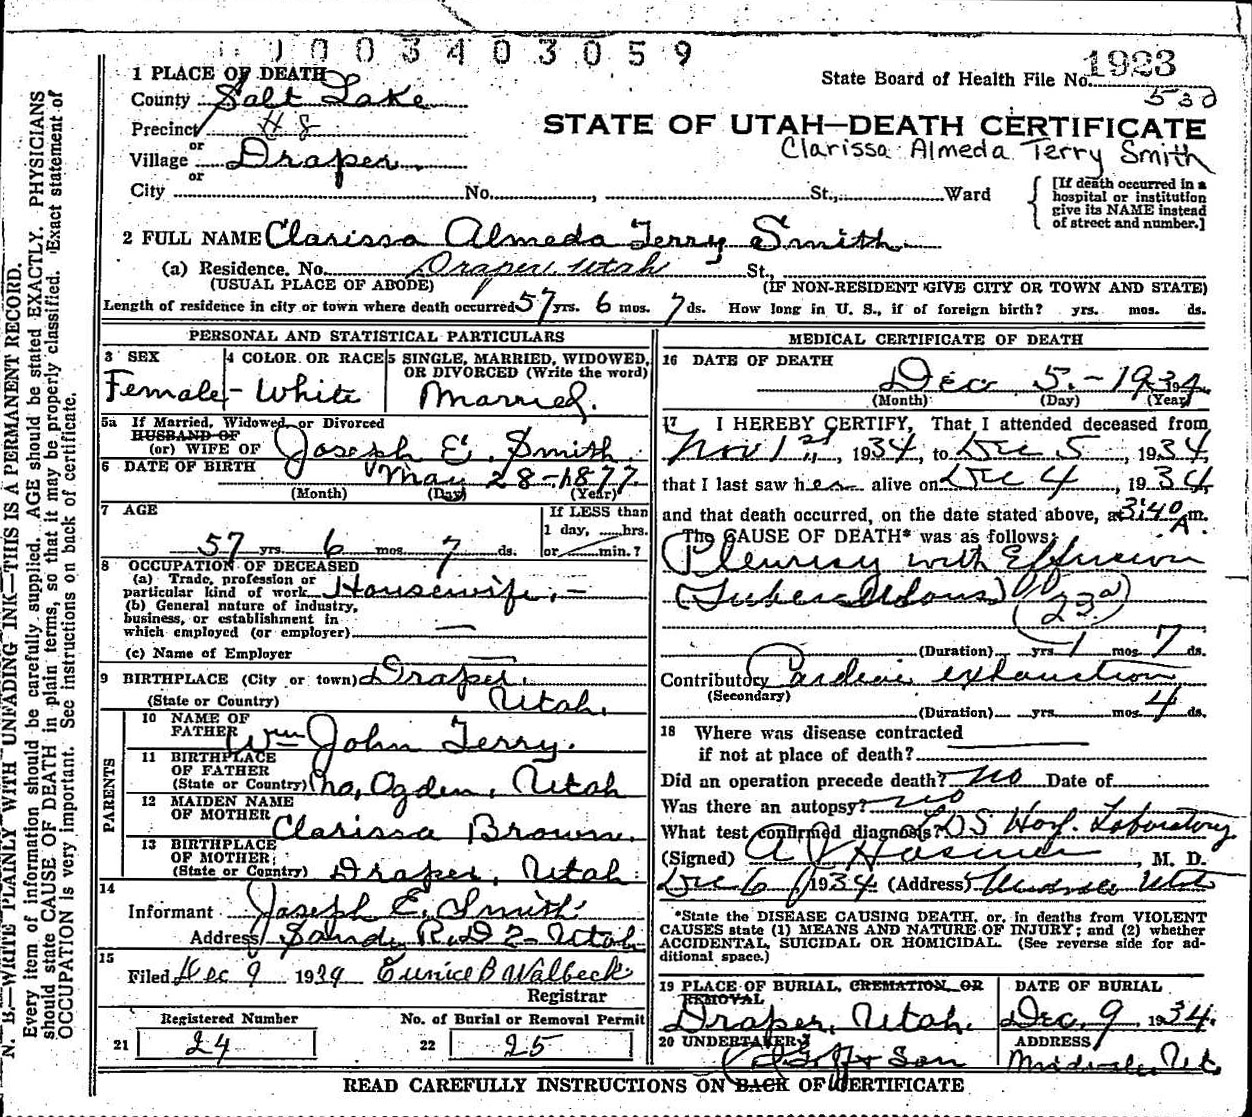 1003403059
1 PLACE OF DEATH
State Board of Health File No. 1923
County Salt Lake
530
Precinct H8
STATE OF UTAH—DEATH CERTIFICATE
or
Clarissa Almeda Terry Smith
Village Draper
or
City No. , St., Ward
[If death occurred in a
hospital or institution
give its NAME instead
of street and number.]
2 FULL NAME Clarissa Almeda Terry Smith
(a) Residence. No. Draper, Utah St.,
(USUAL PLACE OF ABODE) (IF NON-RESIDENT GIVE CITY OR TOWN AND STATE)
Length of residence in city or town where death occurred 57 yrs. 6 mos. 7 ds. How long in U. S., if of foreign birth? yrs. mos. ds.
PERSONAL AND STATISTICAL PARTICULARS
3 SEX 4 COLOR OR RACE 5 SINGLE, MARRIED, WIDOWED,
OR DIVORCED (Write the word)
Female - White Married.
5a If Married, Widowed, or Divorced
HUSBAND OF
(or) WIFE OF Joseph E. Smith
6 DATE OF BIRTH May 28-1877
(Month) (Day) (Year)
7 AGE If LESS than
1 day, hrs.
57 yrs. 6 mos. 7 ds. or min.?
8 OCCUPATION OF DECEASED
(a) Trade, profession or
particular kind of work Housewife.-
(b) General nature of industry,
business, or establishment in
which employed (or employer) —
(c) Name of Employer —
9 BIRTHPLACE (City or town) Draper,
(State or Country) Utah.
PARENTS
10 NAME OF
FATHER Wm John Terry.
11 BIRTHPLACE
OF FATHER
(State or Country) No. Ogden, Utah
12 MAIDEN NAME
OF MOTHER
Clarissa Brown.
13 BIRTHPLACE
OF MOTHER
(State or Country) Draper, Utah.
14
Informant Joseph E. Smith
Address Sandy R.D 2- Utah
15
Filed Dec 9 1934 Eunice B Walbeck
Registrar
Registered Number No. of Burial or Removal Permit
21 24 22 25
MEDICAL CERTIFICATE OF DEATH
16 DATE OF DEATH
Dec 5.-1934
(Month) (Day) (Year)
17 I HEREBY CERTIFY, That I attended deceased from
Nov 1st, 1934, to Dec 5, 1934,
that I last saw her alive on Dec 4, 1934,
and that death occurred, on the date stated above, at 3:40 A m.
The CAUSE OF DEATH* was as follows:
Pleurisy with Effusion
(Tuberculous) 23a
(Duration) yrs. 1 mos. 7 ds.
Contributory Cardiac exhaustion
(Secondary)
(Duration) yrs. mos. 4 ds.
18 Where was disease contracted
if not at place of death?
Did an operation precede death? no Date of
Was there an autopsy? no
What test confirmed diagnosis? LDS Hosp. Laboratory
(Signed) A J Hosmer, M. D.
Dec 6, 1934 (Address) Midvale Utah
*State the DISEASE CAUSING DEATH, or, in deaths from VIOLENT
CAUSES state (1) MEANS AND NATURE OF INJURY; and (2) whether
ACCIDENTAL, SUICIDAL OR HOMICIDAL. (See reverse side for ad-
ditional space.)
19 PLACE OF BURIAL, CREMATION, OR
REMOVAL
DATE OF BURIAL
Draper, Utah. Dec. 9, 1934.
20 UNDERTAKER ADDRESS
Goff & Son Midvale, Ut.
READ CAREFULLY INSTRUCTIONS ON BACK OF CERTIFICATE
N. B.—WRITE PLAINLY WITH UNFADING INK—THIS IS A PERMANENT RECORD.
Every item of information should be carefully supplied. AGE should be stated EXACTLY. PHYSICIANS
should state CAUSE OF DEATH in plain terms, so that it may be properly classified. Exact statement of
OCCUPATION is very important. See instructions on back of certificate.